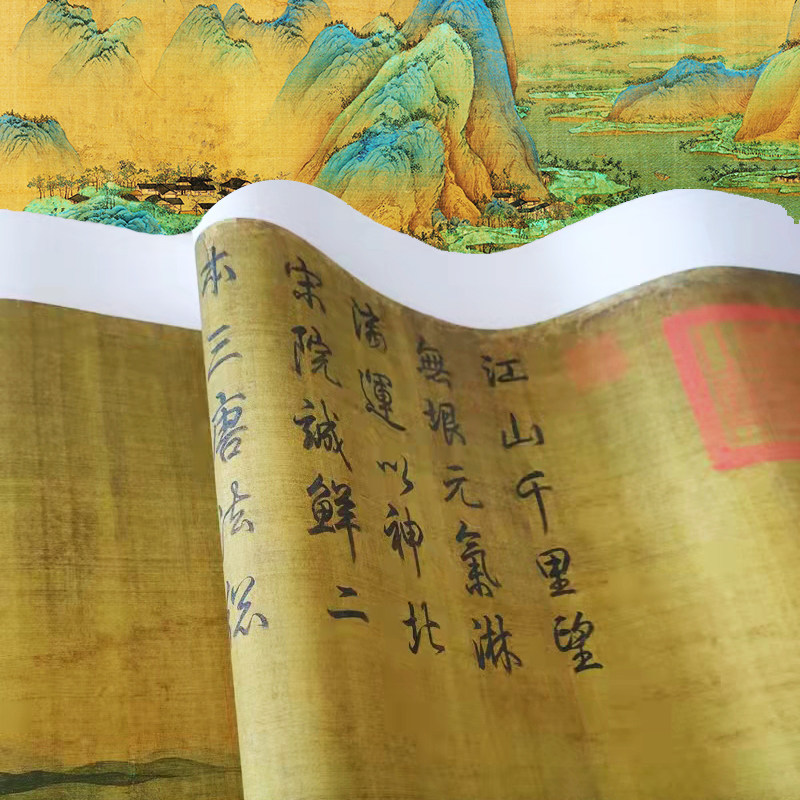 江山千里望
無垠元氣淋
漓運以神北
宋院誠鮮二
本三唐法總